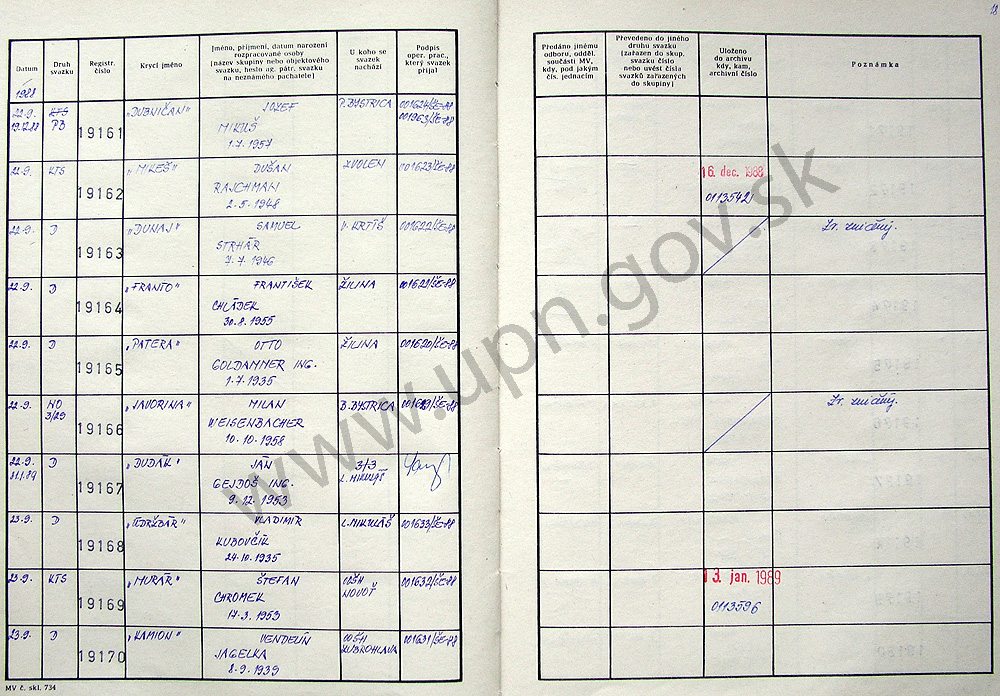 18
Datum
Druh
svazku
Registr.
číslo
Krycí jméno
Jméno, příjmení, datum narození
rozpracované osoby
(název skupiny nebo objektového
svazku, heslo ag. pátr. svazku
na neznámého pachatele)
U koho se
svazek
nachází
Podpis
oper. prac.,
který svazek
přijal
Předáno jinému
odboru, odděl.
součásti MV,
kdy, pod jakým
čís. jednacím
Převedeno do jiného
druhu svazku
(zařazen do skup.
svazku číslo
nebo uvést čísla
svazků zařazených
do skupiny)
Uloženo
do archivu
kdy, kam,
archivní číslo
Poznámka
1988
22.9. KTS 19161 „DUBNIČAN" JOZEF P. BYSTRICA 001624/ŠE-88
19.12.88 PB MIKUŠ 001963/ŠE-88
1.7.1957
22.9. KTS 19162 „MIKEŠ" DUŠAN ZVOLEN 001623/ŠE-88 16. dec. 1988
RAJCHMAN 0113542
2.5.1948
22.9. D 19163 „DUNAJ" SAMUEL V. KRTÍŠ 001622/ŠE-88 Zr. zničený.
STRHÁR
7.7.1946
22.9. D 19164 „FRANTO" FRANTIŠEK ŽILINA 001621/ŠE-88
CHLÁDEK
30.8.1955
22.9. D 19165 „PATERA" OTTO ŽILINA 001620/ŠE-88
GOLDAMMER ING.
1.7.1935
22.9. NO 19166 „JAVORINA" MILAN B. BYSTRICA
3/29 WEISENBACHER Zr. zničený.
10.10.1958
22.9. D 19167 „DUDÁK" JÁN 3/3
31.1.89 GEJDOŠ ING. L. MIKULÁŠ
9.12.1953
23.9. D 19168 „ÚDRŽBÁR" VLADIMÍR L. MIKULÁŠ 001633/ŠE-88
KUBOVČÍK
24.10.1935
23.9. KTS 19169 „MURÁR" ŠTEFAN OOŠH 001632/ŠE-88 13. jan. 1989
CHROMEK NOVOŤ 0113596
17.3.1953
23.9. D 19170 „KAMION" VENDELÍN OOŠH 001631/ŠE-88
JAGELKA
8.9.1939
MV č. skl. 734
www.upn.gov.sk